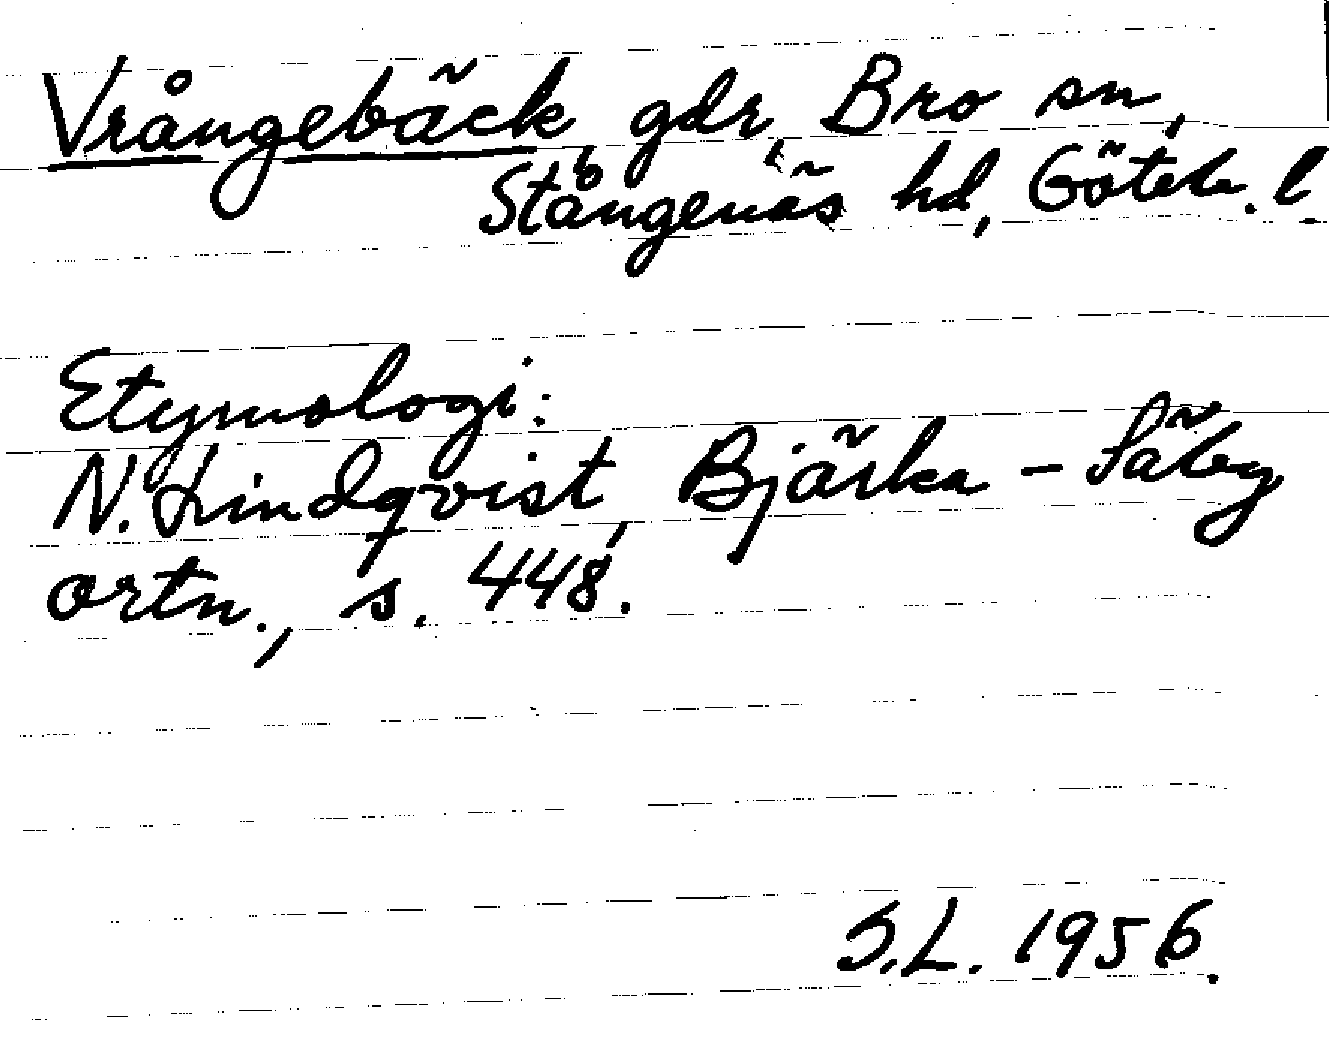 Vrångebäck, gdr, Bro sn,
Stångenäs hd, Göteb. l.
Etymologi:
N. Lindqvist, Bjärka-Säby
ortn., s. 448.
S.L. 1956.